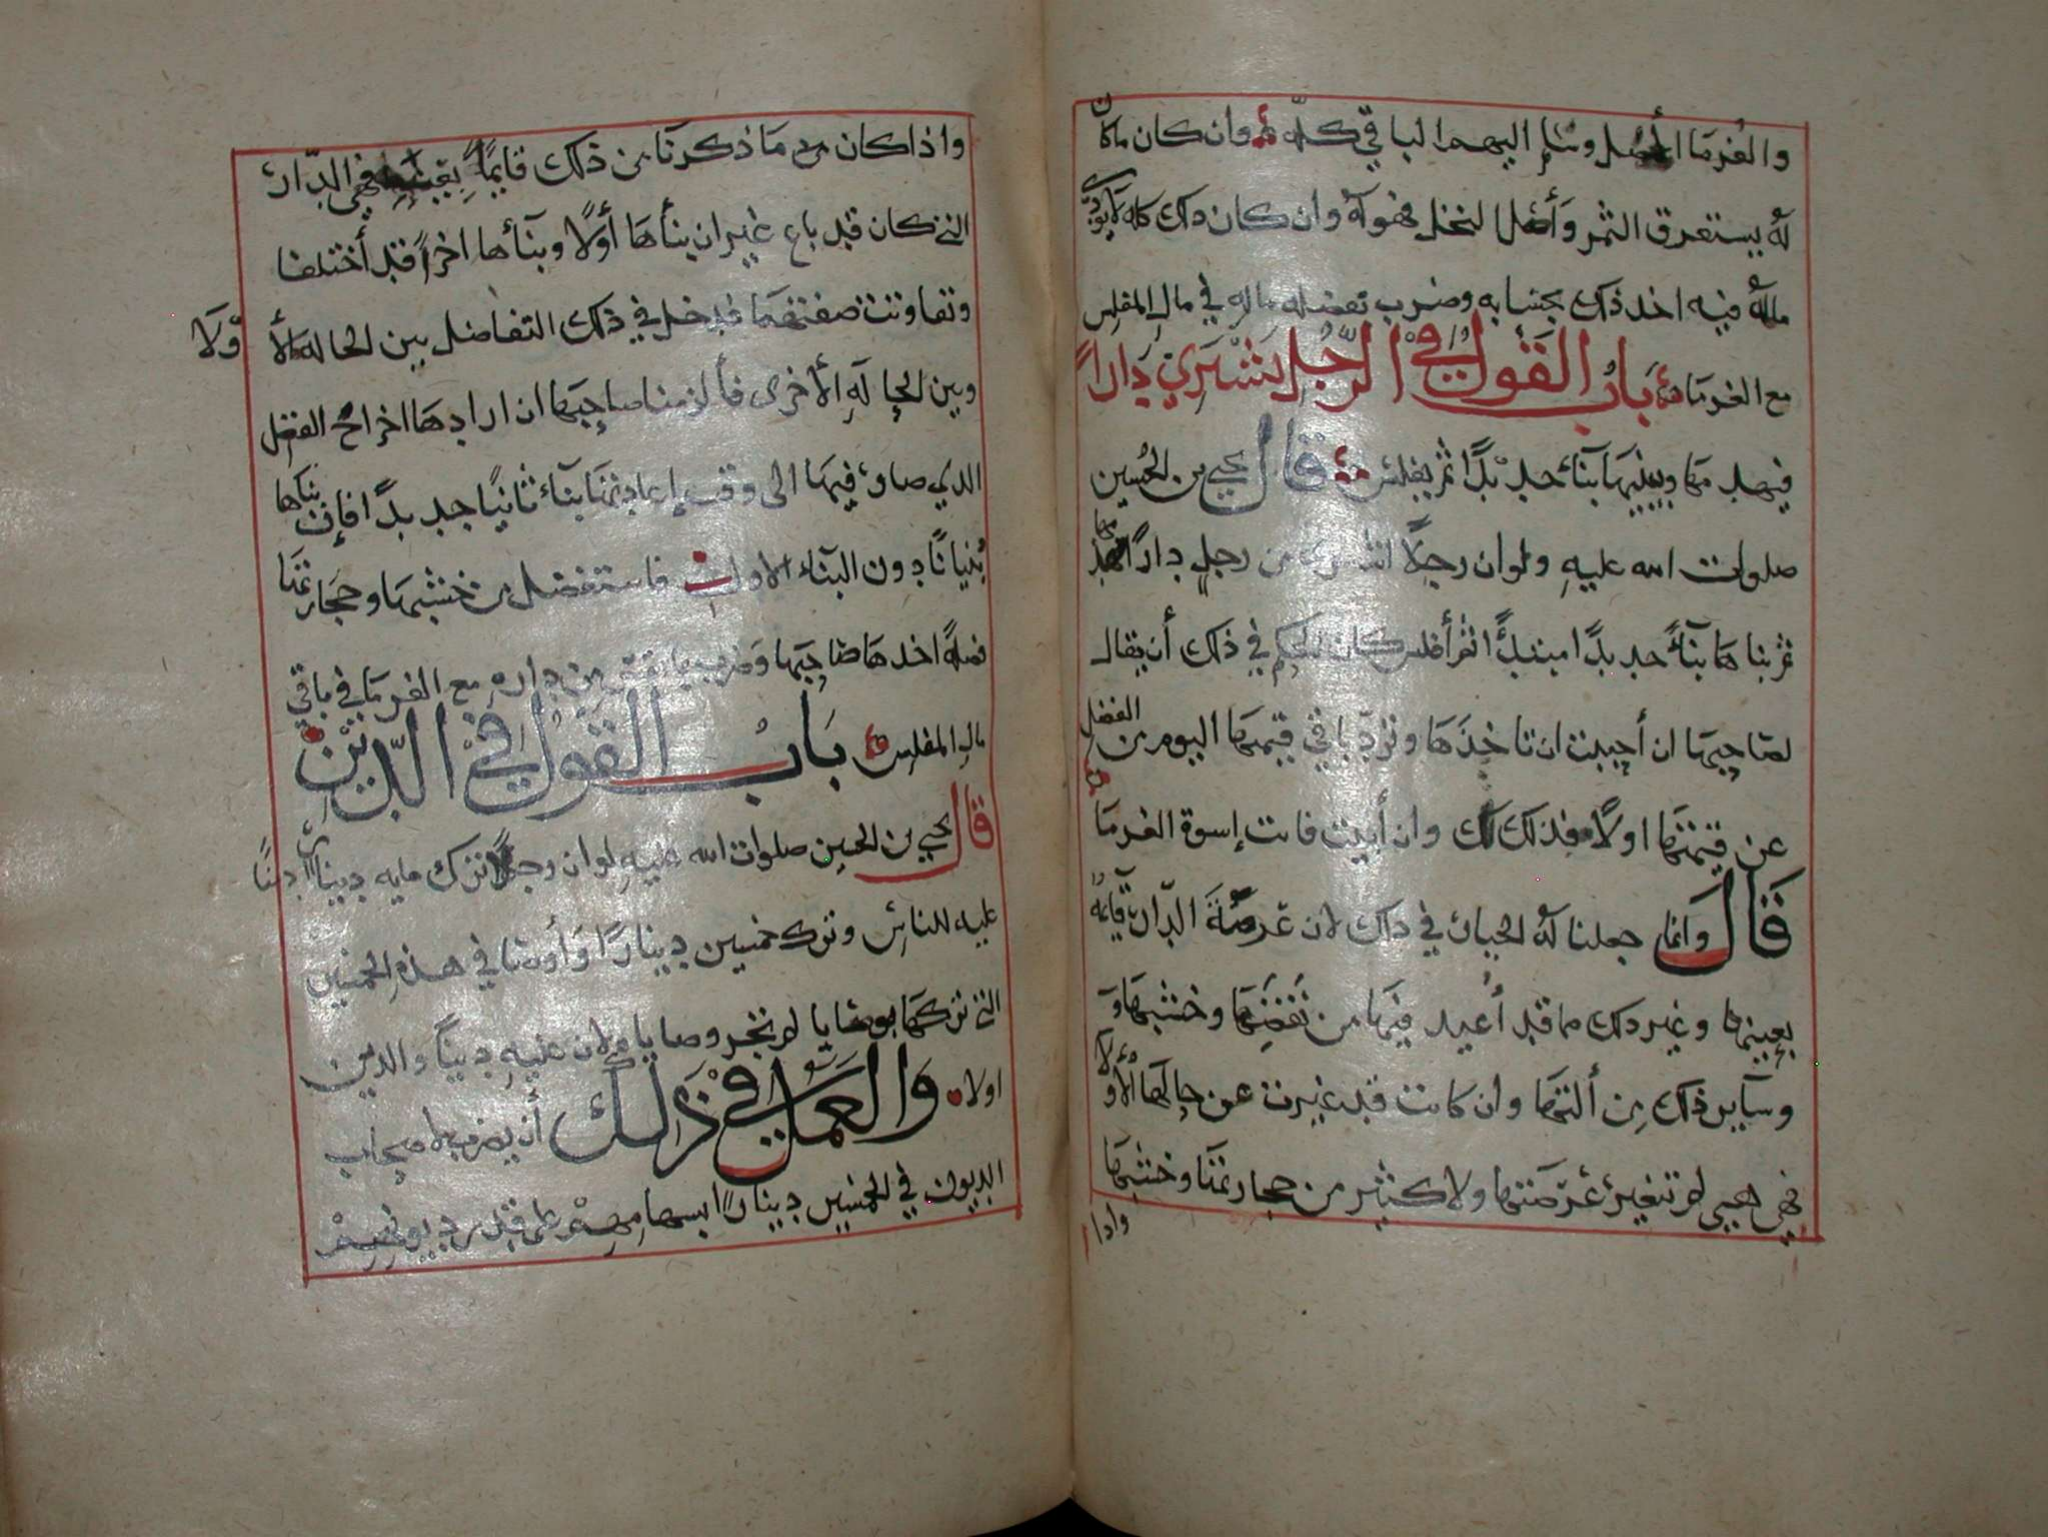 والغرما أصل وسلم اليهم الباقي كله وان كان ماكان
له يستغرق الثمر وأصل النخل فهو له وان كان ذلك كله لا يودي
ماله فيه اخذ ذلك بحسابه وضرب بفضله ماله في مال المفلس
مع الغرما باب القول في الرجل يشتري دارا
فيهدمها ويبنيها بنآء جديدا ثم يفلس قال يحيى بن الحسين
صلوات الله عليه ولو ان رجلا اشترى من رجل دارا فهدمها
ثم بناها بنآء جديدا مبتدا ثم أفلس كان الحكم في ذلك أن يقال
لصاحبها ان أحببت ان تاخذها وترد باقي قيمتها اليوم من الفضل
عن قيمتها اولا فذلك لك وان أبيت فانت إسوة الغرما
قال وانما جعلنا له الخيار في ذلك لان عرصة الدار قآيمة
بعينها وغير ذلك مما قد أعيد فيها من نقضها وخشبها و
وسآير ذلك من ألتها وان كانت قد غيرت عن حالها الأولا
فهي هي لم تتغير عرصتها ولا كثير من حجارتها وخشبها
واذا
واذا كان مع ما ذكرنا من ذلك قايما بعينه فهي الدار
التي كان قد باع غير ان بنأها أولا وبنأها اخرا قد أختلفا
وتفاوتت صفتهما فدخل في ذلك التفاضل بين الحاله الأولا
وبين الحاله الأخرى فألزمنا صاحبها ان ارادها اخراج الفضل
الذي صار فيها الى وقت إعادتها بنآء ثانيا جديدا فإن بناها
بنيانا دون البنآء الاول فاستفضل من خشبها وحجارتها
فضله اخذها صاحبها وضرب بما نقص من داره مع الغرما في باقي
مال المفلس باب القول في الدين
قال يحيى بن الحسين صلوات الله عليه لو ان رجلا ترك مايه دينار دينا
عليه للناس وترك خمسين دينارا وأوصا في هذه الخمسين
التي تركها بوصايا لم تجز وصاياه لان عليه دينا والدين
اولا والعمل في ذلك أن يضرب لاصحاب
الديون في الخمسين دينارا بسهامهم على قدر ديونهم